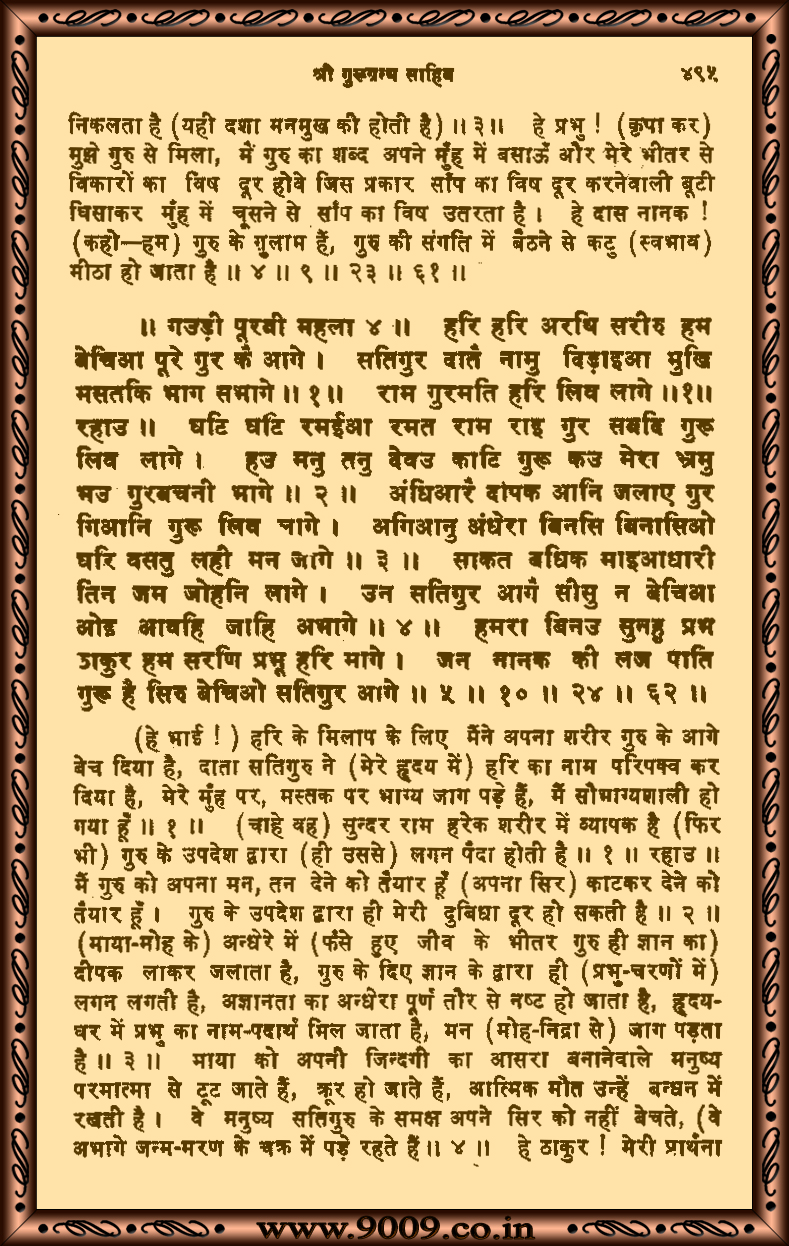 श्री गुरूग्रन्थ साहिब ४९५
निकलता है (यही दशा मनमुख की होती है) ॥ ३ ॥ हे प्रभु ! (कृपा कर)
मुझे गुरु से मिला, मैं गुरु का शब्द अपने मुँह में बसाऊँ और मेरे भीतर से
विकारों का विष दूर होवे जिस प्रकार साँप का विष दूर करनेवाली बूटी
घिसाकर मुँह में चूसने से साँप का विष उतरता है । हे दास नानक !
(कहो—हम) गुरु के गुलाम हैं, गुरु की संगति में बैठने से कटु (स्वभाव)
मीठा हो जाता है ॥ ४ ॥ ९ ॥ २३ ॥ ६१ ॥
॥ गउड़ी पूरबी महला ४ ॥ हरि हरि अरथि सरीरु हम
बेचिआ पूरे गुर कै आगे । सतिगुर दातै नामु दिड़ाइआ मुखि
मसतकि भाग सभागे ॥ १ ॥ राम गुरमति हरि लिव लागे ॥१॥
रहाउ ॥ घटि घटि रमईआ रमत राम राइ गुर सबदि गुरू
लिव लागे । हउ मनु तनु देवउ काटि गुरू कउ मेरा भ्रमु
भउ गुरबचनी भागे ॥ २ ॥ अंधिआरै दीपक आनि जलाए गुर
गिआनि गुरू लिव लागे । अगिआनु अंधेरा बिनसि बिनासिओ
घरि वसतु लही मन जागे ॥ ३ ॥ साकत बधिक माइआधारी
तिन जम जोहनि लागे । उन सतिगुर आगै सीसु न बेचिआ
ओइ आवहि जाहि अभागे ॥ ४ ॥ हमरा बिनउ सुनहु प्रभ
ठाकुर हम सरणि प्रभू हरि मागे । जन नानक की लज पाति
गुरू है सिरु बेचिओ सतिगुर आगे ॥ ५ ॥ १० ॥ २४ ॥ ६२ ॥
(हे भाई ! ) हरि के मिलाप के लिए मैंने अपना शरीर गुरु के आगे
बेच दिया है, दाता सतिगुरु ने (मेरे हृदय में) हरि का नाम परिपक्व कर
दिया है, मेरे मुँह पर, मस्तक पर भाग्य जाग पड़े हैं, मैं सौभाग्यशाली हो
गया हूँ ॥ १ ॥ (चाहे वह) सुन्दर राम हरेक शरीर में व्यापक है (फिर
भी) गुरु के उपदेश द्वारा (ही उससे) लगन पैदा होती है ॥ १ ॥ रहाउ ॥
मैं गुरु को अपना मन, तन देने को तैयार हूँ (अपना सिर) काटकर देने को
तैयार हूँ । गुरु के उपदेश द्वारा ही मेरी दुबिधा दूर हो सकती है ॥ २ ॥
(माया-मोह के) अन्धेरे में (फँसे हुए जीव के भीतर गुरु ही ज्ञान का)
दीपक लाकर जलाता है, गुरु के दिए ज्ञान के द्वारा ही (प्रभु-चरणों में)
लगन लगती है, अज्ञानता का अन्धेरा पूर्ण तौर से नष्ट हो जाता है, हृदय-
घर में प्रभु का नाम-पदार्थ मिल जाता है, मन (मोह-निद्रा से) जाग पड़ता
है ॥ ३ ॥ माया को अपनी जिन्दगी का आसरा बनानेवाले मनुष्य
परमात्मा से टूट जाते हैं, क्रूर हो जाते हैं, आत्मिक मौत उन्हें बन्धन में
रखती है । वे मनुष्य सतिगुरु के समक्ष अपने सिर को नहीं बेचते, (वे
अभागे जन्म-मरण के चक्र में पड़े रहते हैं ॥ ४ ॥ हे ठाकुर ! मेरी प्रार्थना
www.9009.co.in